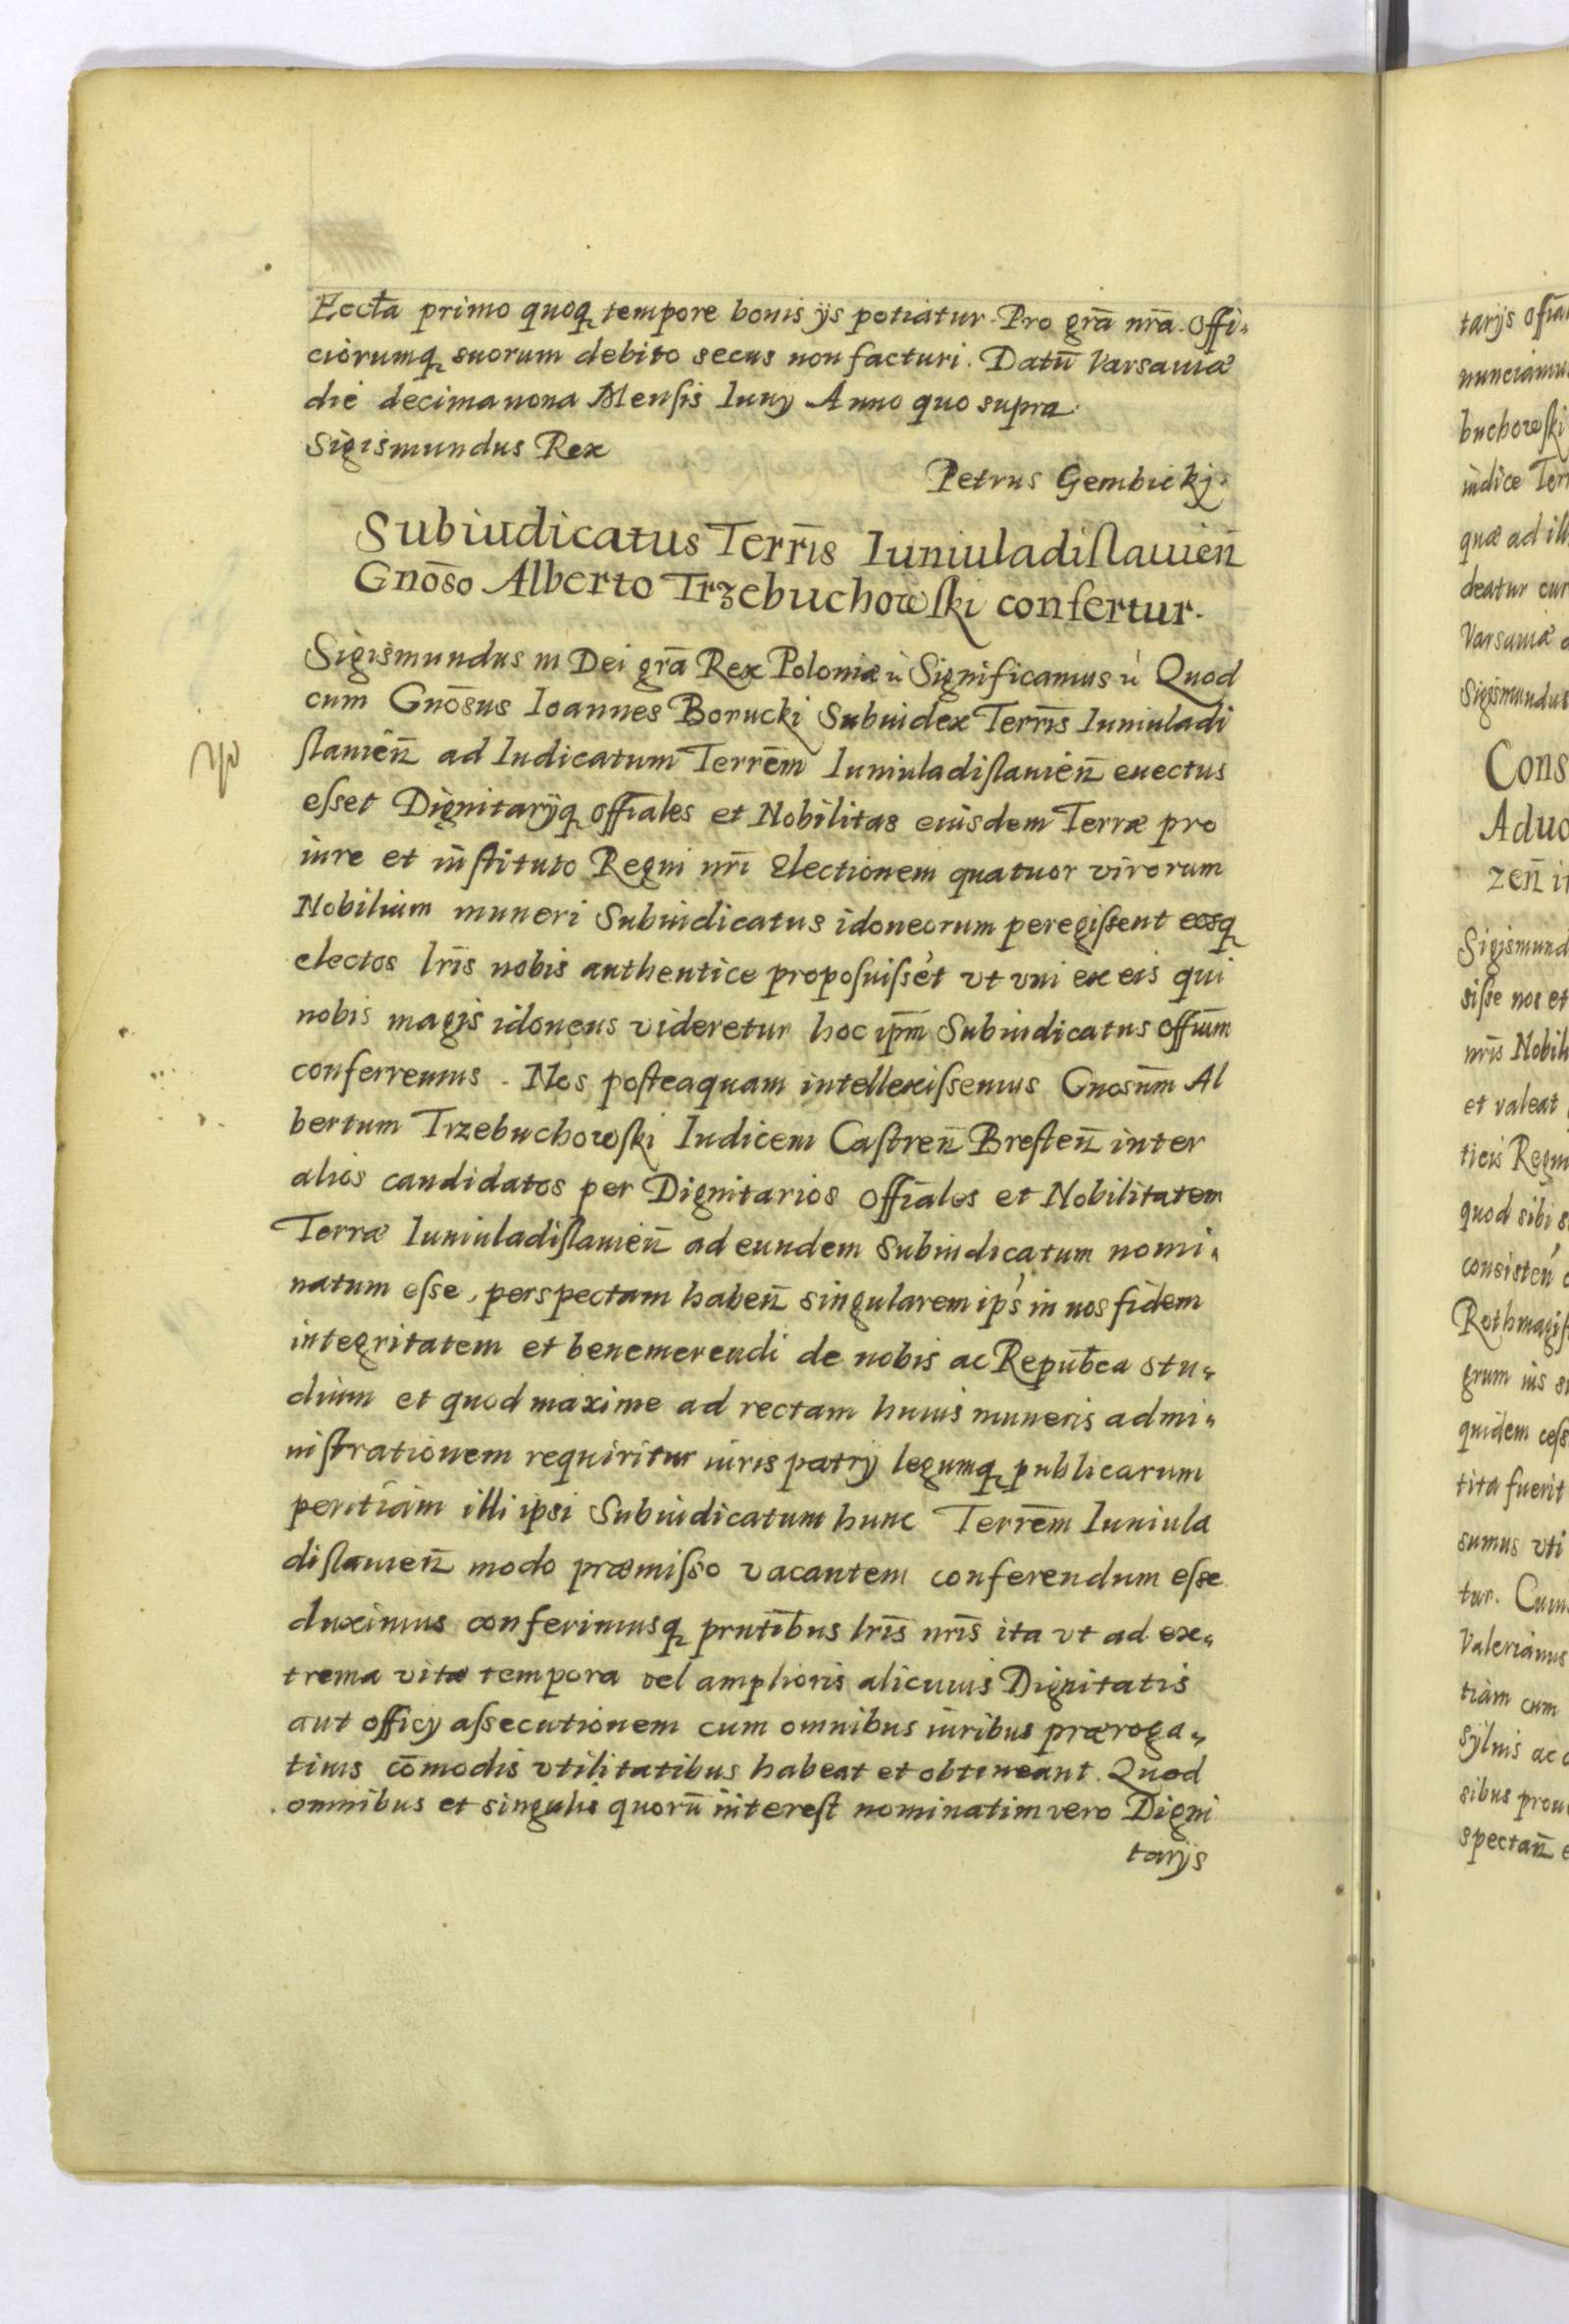 Eccła primo quoq tempore bonis ijs potiatur. Pro grā nrā. Offi-
ciorumq suorum debito secus non facturi. Datū Varsauiæ
die decima nona Menſis Iunij Anno quo supra.
Sigismundus Rex
Petrus Gembickj.
Subiudicatus Terrīs Iuniuladiſlauień
Gnōso Alberto Trzebuchowſki confertur.
Sigismundus III Dei grā Rex Poloniæ ù Significamus ù Quod
cum Gnōsus Ioannes Borucki Subiudex Terrīs Iuniuladi
ſlauień ad Iudicatum Terrēm Iuniuladiſlauień euectus
eſset Dignitarijq offiāles et Nobilitas eiusdem Terræ pro
iure et inſtituto Regni nrī Electionem quatuor virorum
Nobilium muneri Subiudicatus idoneorum peregiſsent eosq
electos lrīs nobis authentice propoſuiſsēt vt vni ex eis qui
nobis magis idoneus videretur hoc ipm̄ Subiudicatus offium̄
conferremus. Nos poſteaquam intellexiſsemus Gnosūm Al
bertum Trzebuchowſki Iudicem Caſtreń Breſteń inter
alios candidatos per Dignitarios offiāles et Nobilitatem
Terræ Iuniuladiſlauień ad eundem Subiudicatum nomi-
natum eſse, perspectam habeń singularem ips' in nos fidem
integritatem et benemerendi de nobis ac Repub̄ca stu-
dium et quod maxime ad rectam huius muneris admi-
niſtrationem requiritur iuris patrij legumq publicarum
peritiam illi ipsi Subiudicatum hunc Terrēm Iuniula
diſlauień modo præmiſso vacantem conferendum eſse
duximus conferimusq prntībus lrīs nrīs ita vt ad ex-
trema vitæ tempora vel amplioris alicuius Dignitatis
aut officij aſsecutionem cum omnibus iuribus præroga-
tiuis cōmodis vtilitatibus habeat et obtineant. Quod
omnibus et singulis quorū intereſt nominatim vero Digni
tarijs
tarijs
nunciamu
buchowſki
iudice Ter
quæ ad ill
deatur cur
Varsauiæ
Sigismundus
Cons
Aduo
zeń i
Sigismund
siſse nos et
nrīs Nobil
et valeat
ticis Regni
quod sibi s
consisteń
Rothmagiſ
grum ius s
quidem ceſs
tita fuerit
sumus vti
tur. Cum
Valerianus
tiam cum
Syluis ac
sibus prou
spectań